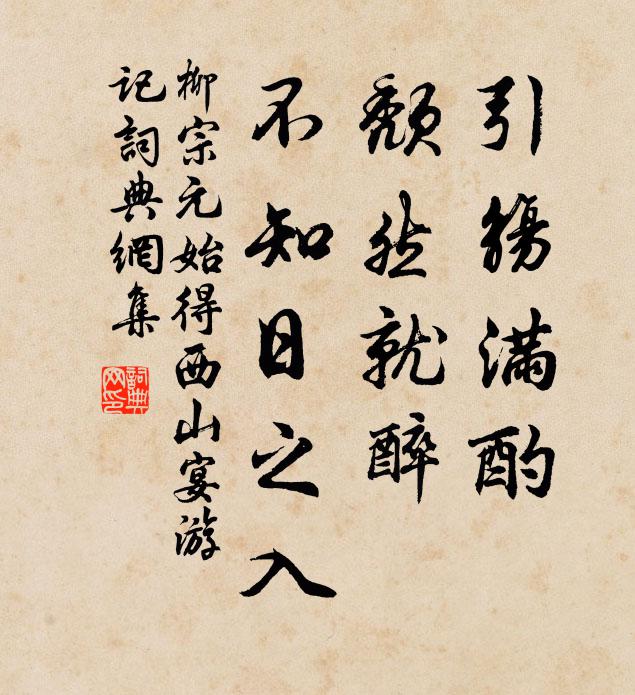 引觴滿酌
頹然就醉
不知日之入
柳宗元始得西山宴游
記詞典網集
詞典網印